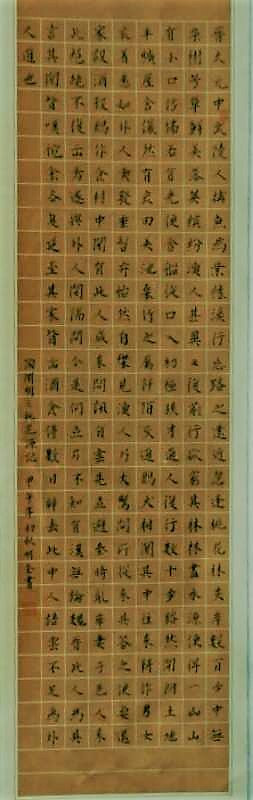 晉太元中武陵人捕魚為業緣溪行忘路之遠近忽逢桃花林夾岸數百步中無
雜樹芳草鮮美落英繽紛漁人甚異之復前行欲窮其林林盡水源便得一山山
有小口彷彿若有光便舍船從口入初極狹才通人復行數十步豁然開朗土地
平曠屋舍儼然有良田美池桑竹之屬阡陌交通雞犬相聞其中往來種作男女
衣著悉如外人黃髮垂髫并怡然自樂見漁人乃大驚問所從來具答之便要還
家設酒殺雞作食村中聞有此人咸來問訊自雲先世避秦時亂率妻子邑人來
此絕境不復出焉遂與外人間隔問今是何世乃不知有漢無論魏晉此人一一為具
言所聞皆嘆惋餘人各復延至其家皆出酒食停數日辭去此中人語雲不足為外
人道也
陶淵明桃花源記 甲午年初秋 書